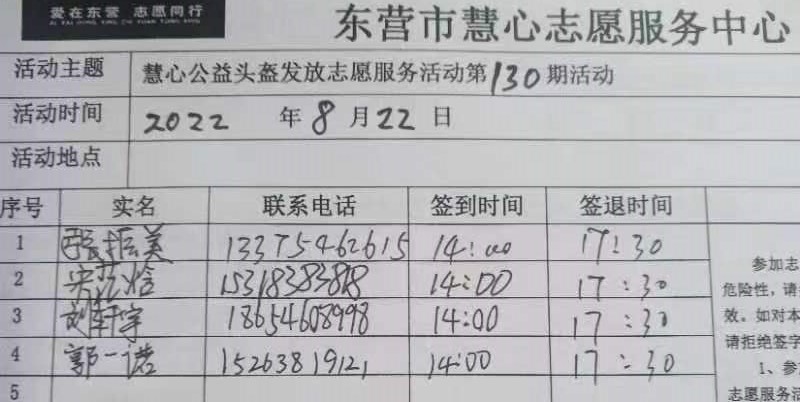 爱在东营 志愿同行
AI ZAI DONG YING ZHI YUAN TONG XING
东营市慧心志愿服务中心
活动主题 慧心公益头盔发放志愿服务活动第130期活动
活动时间 2022 年 8 月 22 日
活动地点
序号 实名 联系电话 签到时间 签退时间
1 张振美 13375462615 14:00 17:30
2 15318383818 14:00 17:30
3 刘轩宇 18654608998 14:00 17:30
4 郭一诺 15263819121 14:00 17:30
5
参加志
危险性，请
效。如对本
请拒绝签字
1、参
志愿服务活